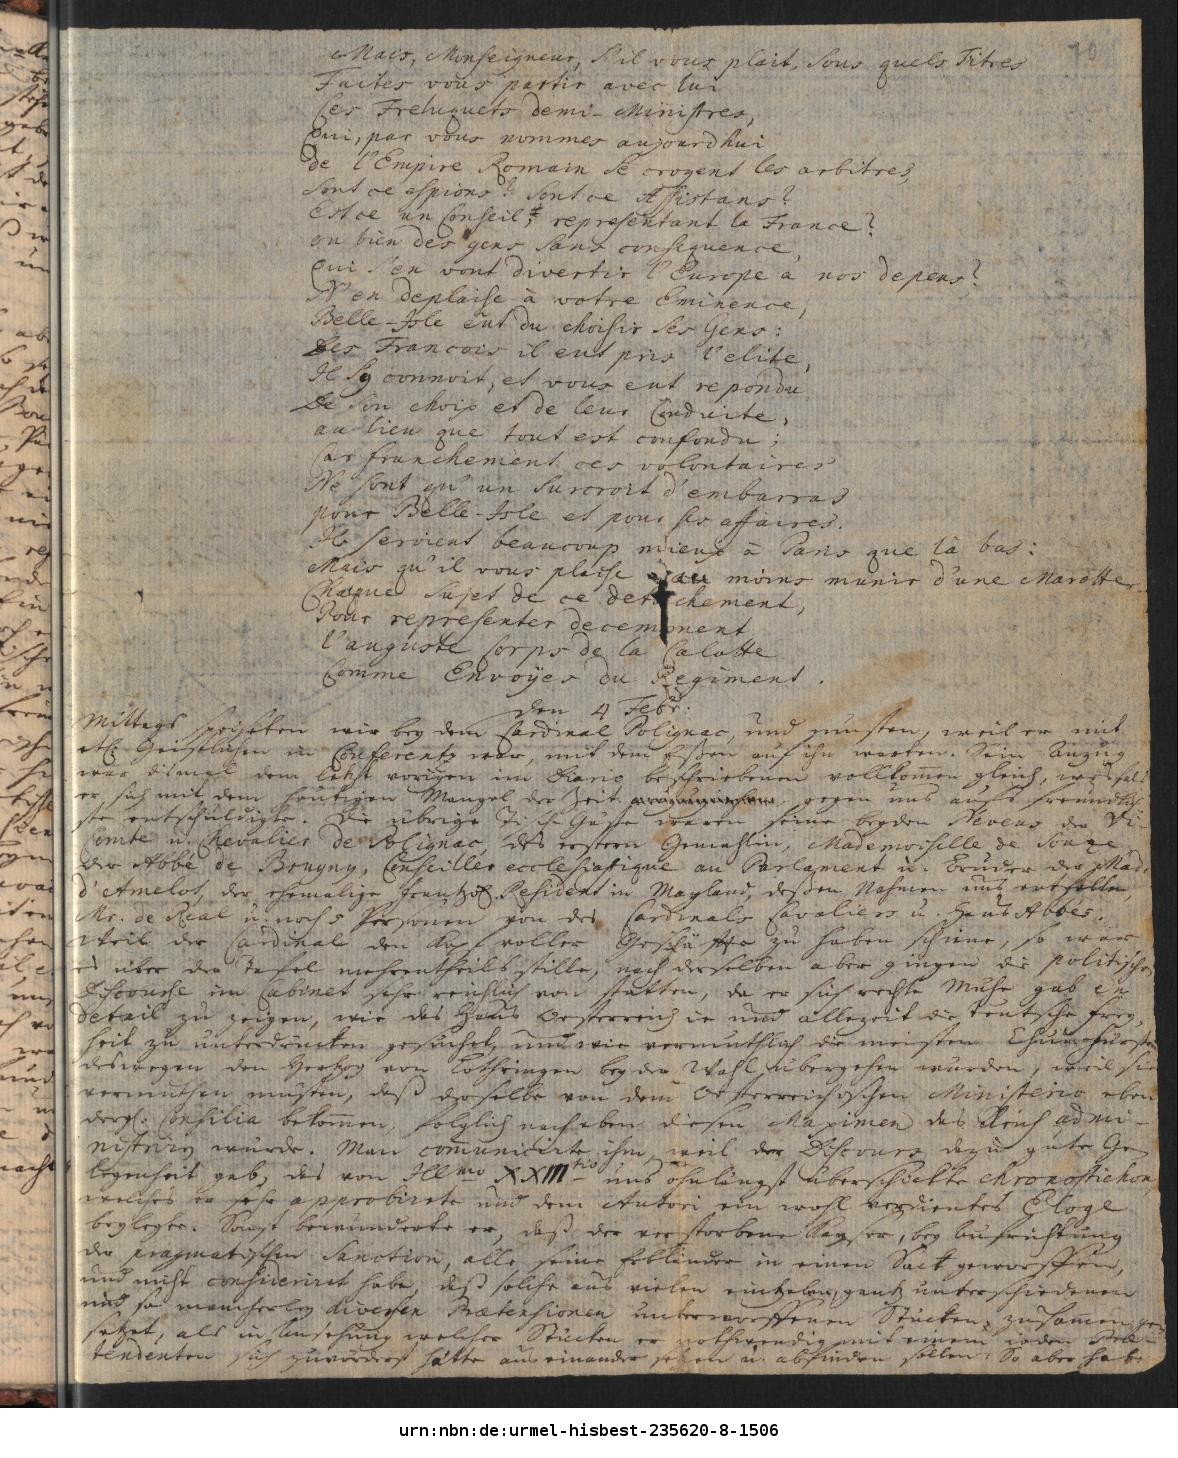 70
Mais, Monseigneur, s'il vous plait, Sous quels Titres
Faites vous partir avec lui
Ces Freluquets demi-Ministres,
Qui, par vous nommes aujourd'hui
de l'Empire Romain se croyent les arbitres,
Sont ce espions? Sont ce Assistans?
Est ce un Conseil, representant la France?
ou bien des gens sans consequence,
qui s'en vont divertir l'Europe à nos depens?
N'en deplaise à votre Eminence,
Belle-Isle eût du choisir ses Gens:
Des Francois il eut pris l'elite,
Il s'y connoit, et vous eut repondu
De son choix et de leur Conduite,
au lieu que tout est confondu;
Car franchement ces volontaires
Ne sont qu'un surcroit d'embarras
pour Belle-Isle et pour ses affaires.
Ils seroient beaucoup mieux à Paris que là bas:
Mais qu'il vous plaise au moins munir d'une Marotte
Chaque Sujet de ce detachement,
Pour representer decemment
l'auguste Corps de la Calotte
Comme Envoÿes du Regiment.
den 4 Febr:
Mittags speiseten wir bey dem Cardinal Polignac, und musten, weil er mit
etl. Geistlichen in Conferentz war, mit dem Eßen auf ihn warten. Sein Anzug
war dismal dem letzt vorigen im Diario beschriebenen vollkommen gleich, weshalb
er sich mit dem heutigen Mangel der Zeit gegen uns aufs freundlich
ste entschuldigte. Die übrige Tisch Gäste waren seine beyden Neveus der Vi-
Comte u. Chevalier de Polignac, des erstern Gemahlin, Mademoiselle de
der Abbé de Conseiller ecclesiastique au Parlament u. Bruder der Mad.
d'Amelot, der ehemalige Frantzös. Resident in Mayland, deßen Nahmen uns entfallen,
Mr. de Real u. noch 5 Personen von des Cardinals Cavaliers u. Haus Abbés.
Weil der Cardinal den Kopf voller Geschäffte zu haben schiene, so war
es über der Tafel mehrentheils stille, nach derselben aber gingen die politische
Discourse im Cabinet sehr reichlich von statten, da er sich rechte Mühe gab en
detail zu zeigen, wie das Haus Oesterreich ie und allezeit die teutsche Frey-
heit zu unterdrucken gesuchet, und wie vermuthlich die meisten Churfürsten
deswegen den Hertzog von Lothringen bey der Wahl übergehen wurden, weil sie
vermuthen musten, daß derselbe von dem Oesterreichischen Ministerio eben
dergl. Consilia bekommen, folglich nach eben diesen Maximen das Reich admi-
nistriren würde. Man communicirte ihm, weil der Discours dazu gute Ge-
legenheit gab, das von Illmo XXIIItio uns ohnlängst überschickte Chronostichon,
welches er sehr approbirete und dem Autori ein wohl verdientes Eloge
beylegte. Sonst bewunderte er, daß der verstorbene Kayser, bey Aufrichtung
der pragmatischen Sanction, alle seine Erbländer in einen Sack geworffen,
und nicht consideriret habe, daß solche aus vielen eintzelen, gantz unterschiedenen
und so mancherley diversen Prætensionen unterworffenen Stücken, zusammen ge-
setzet, als in Ansehung welcher Stücken er nothwendig mit einem ieden Præ-
tendenten sich zuvörderst hätte aus einander setzen u. abfinden sollen. So aber habe